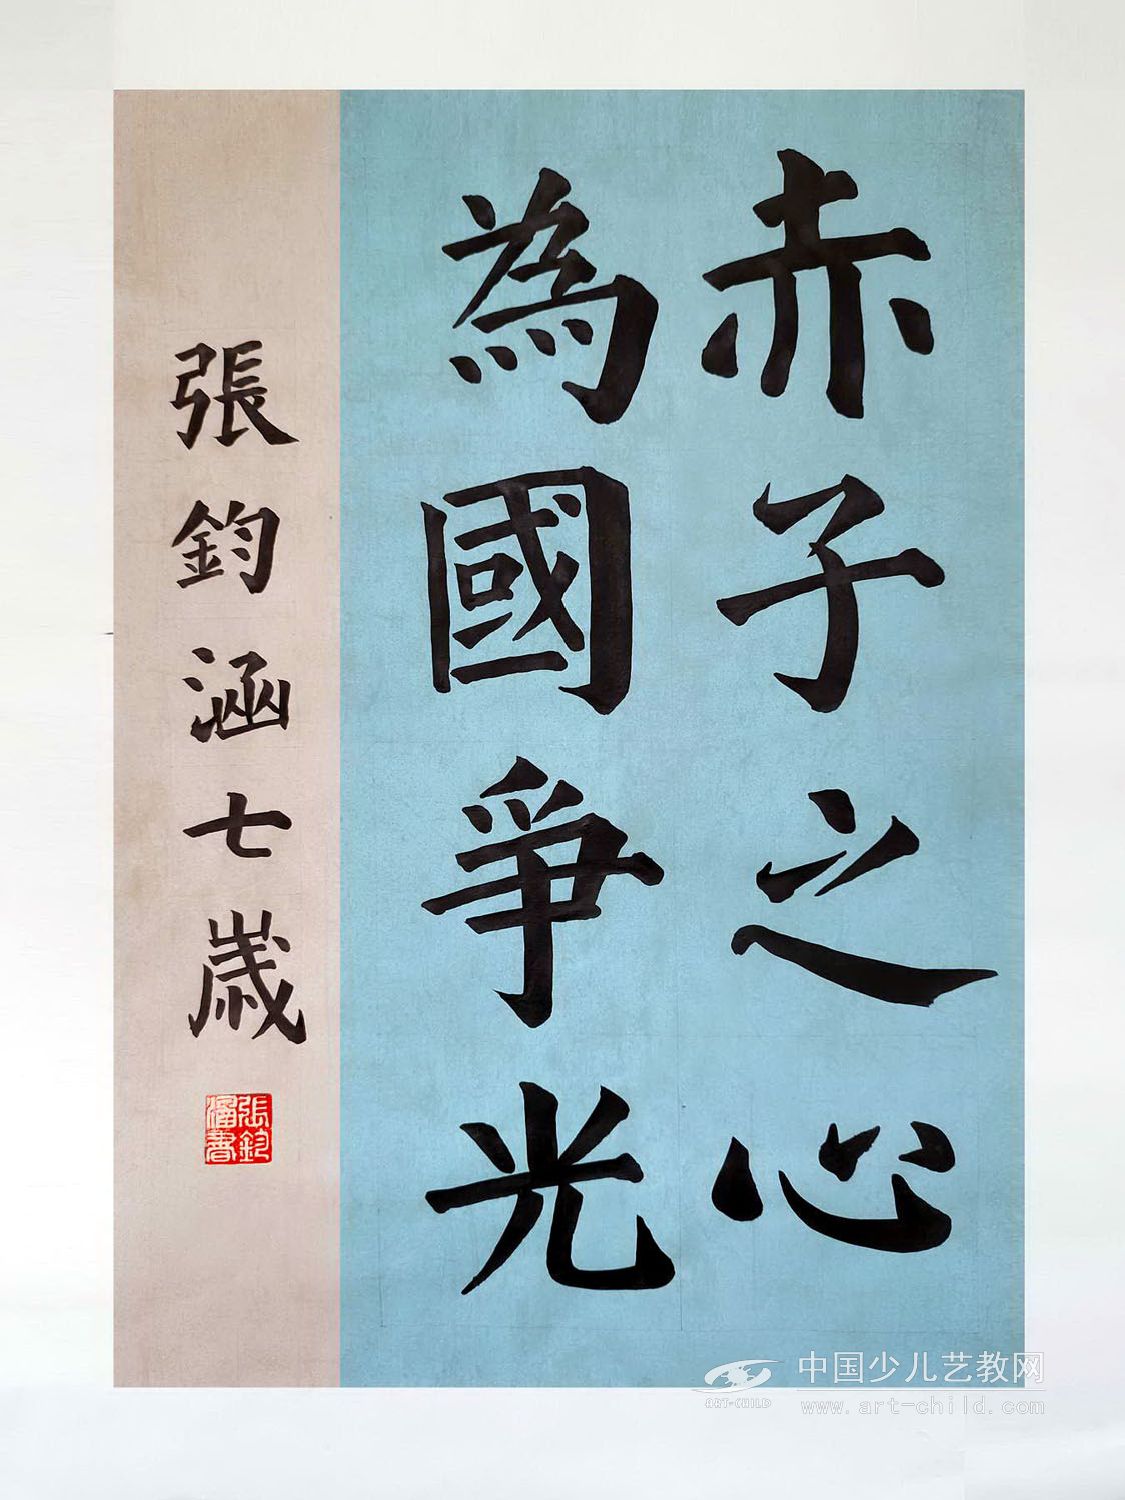 赤子之心
為國爭光
張鈞涵七歲
張鈞
涵書
中国少儿艺教网
ART-CHILD
www.art-child.com